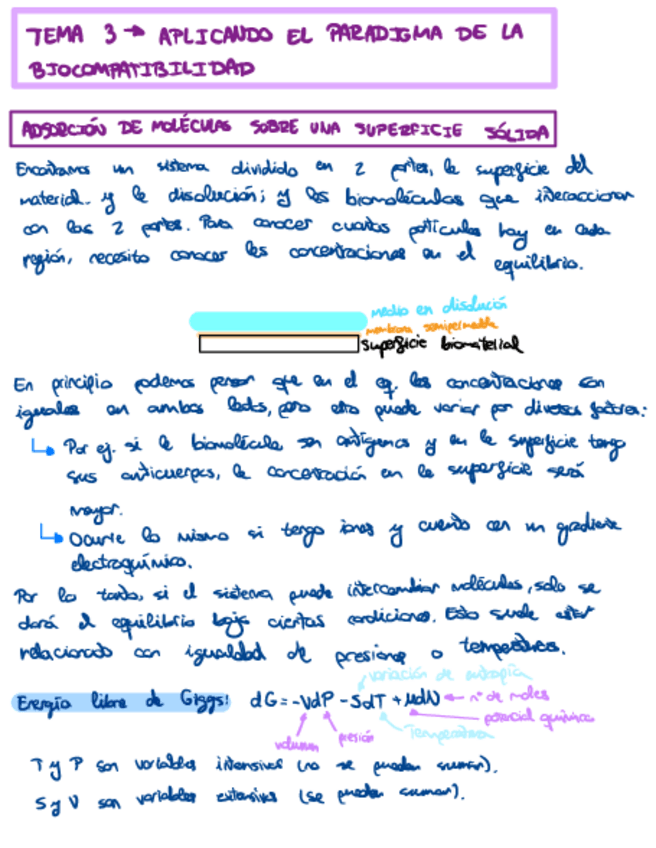 TEMA 3 → APLICANDO EL PARADIGMA DE LA
BIOCOMPATIBILIDAD
ADSORCIÓN DE MOLÉCULAS SOBRE UNA SUPERFICIE SÓLIDA
Encontramos un sistema dividido en 2 partes, la superficie del
material y la disolución; y las biomoléculas que interaccionan
con las 2 partes. Para conocer cuantas partículas hay en cada
región, necesito conocer las concentraciones en el equilibrio.
medio en disolución
membrana semipermeable
superficie biomaterial
En principio podemos pensar que en el eq. las concentraciones son
iguales en ambos lados, pero esto puede variar por diversos factores:
↳ Por ej. si la biomolécula son antígenos y en la superficie tengo
sus anticuerpos, la concentración en la superficie será
mayor.
↳ Ocurre lo mismo si tengo iones y cuento con un gradiente
electroquímico.
Por lo tanto, si el sistema puede intercambiar moléculas, solo se
dará el equilibrio bajo ciertas condiciones. Esto suele estar
relacionado con igualdad de presiones o temperatures.
variación de entropía
Energía libre de Giggs: dG = -VdP - SdT + μdN ← nº de moles
potencial químico
volumen presión Temperatura
T y P son variables intensivas (no se pueden sumar).
S y V son variables extensivas (se pueden sumar).